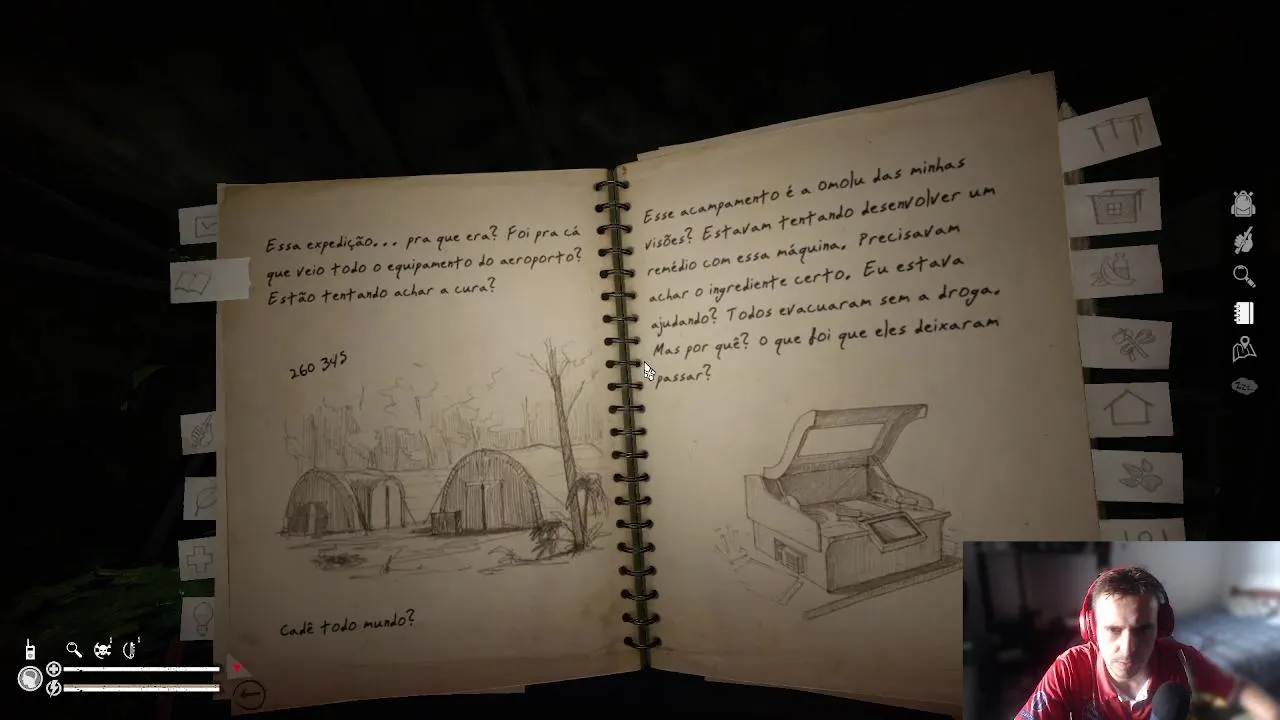 Essa expedição... pra que era? Foi pra cá
que veio todo o equipamento do aeroporto?
Estão tentando achar a cura?
260 345
Cadê todo mundo?
Esse acampamento é a Omolu das minhas
visões? Estavam tentando desenvolver um
remédio com essa máquina. Precisavam
achar o ingrediente certo. Eu estava
ajudando? Todos evacuaram sem a droga.
Mas por quê? O que foi que eles deixaram
passar?